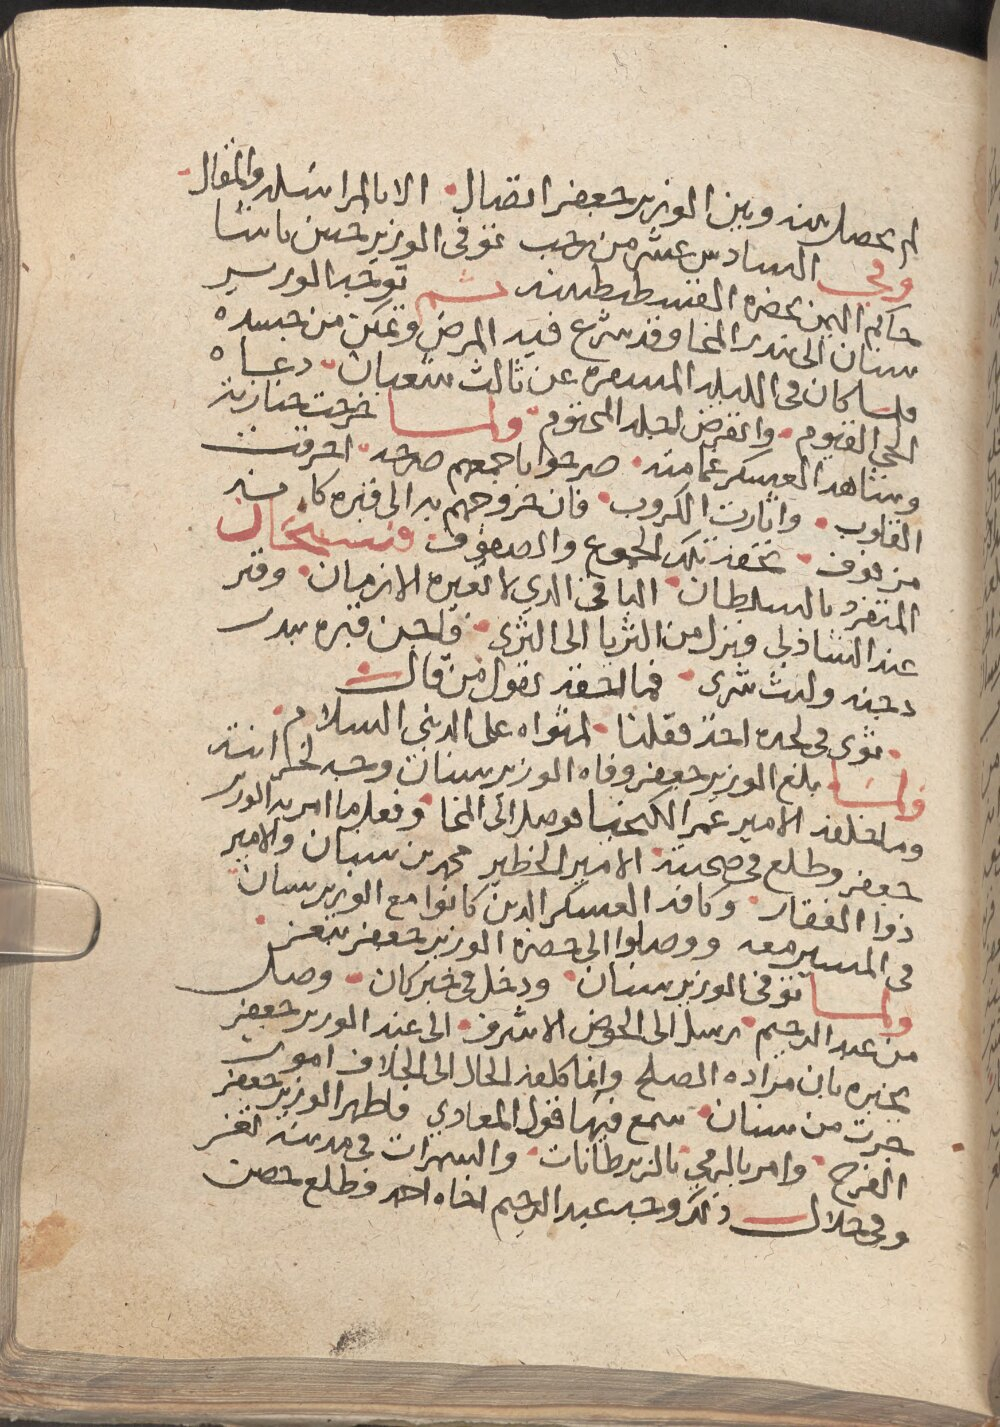 لم يحصل بينه وبين الوزير جعفر اتصال الا بالمراسله والمقال
وفي السادس عشر من رجب توفي الوزير حسن باشا
حاكم اليمن بحضرة القسطنطينيه ثم توجه الوزير
سنان الى بندر المخا وقد شرع فيه المرض وتمكن من جسده
فلما كان في الليله المسفره عن ثالث شعبان دعاه
الحي القيوم وانقرض اجله المحتوم ولما خرجت جنازته
وشاهد العسكر غمامته صرخوا باجمعهم صرخه احرقت
القلوب واثارت الكروب فان خروجهم به الى قبره كانه
من فوف تحفه تلك الجموع والصفوف فسبحان
المتفرد بالسلطان الباقي الذي لا تغيره الازمان وقبر
عند الشاذلي ونزل من الثريا الى الثرى فاجن قبره ببدر
دجنه وليث شرى فما الحقه بقول من قال
ثوى في لحده احد فقلنا لمثواه على الدين السلام
ولما بلغ الوزير جعفر وفاه الوزير سنان وجه لخزانته
وما خلفه الامير عمر الكيخيا فوصل الى المخا وفعل ما امر به الوزير
جعفر وطلع في صحبته الامير الخطير محمد بن سنان والامير
ذوا الفقار وكافه العسكر الذين كانوا مع الوزير سنان
في المسير معه ووصلوا الى حضرة الوزير جعفر بتعز
ولما توفي الوزير سنان ودخل في خبر كان وصل
من عبد الرحيم رسل الى الحوض الاشرف الى عند الوزير جعفر
يخبره بان مراده الصلح وانما كلفه الحال الى الخلاف امور
جرت من سنان سمع فيها قول المعادي فاظهر الوزير جعفر
الفرح وامر بالرمي بالزبرطانات والسهرات في مدينة تعز
وفي خلال ذلك وجه عبد الرحيم اخاه احمد فطلع حصن